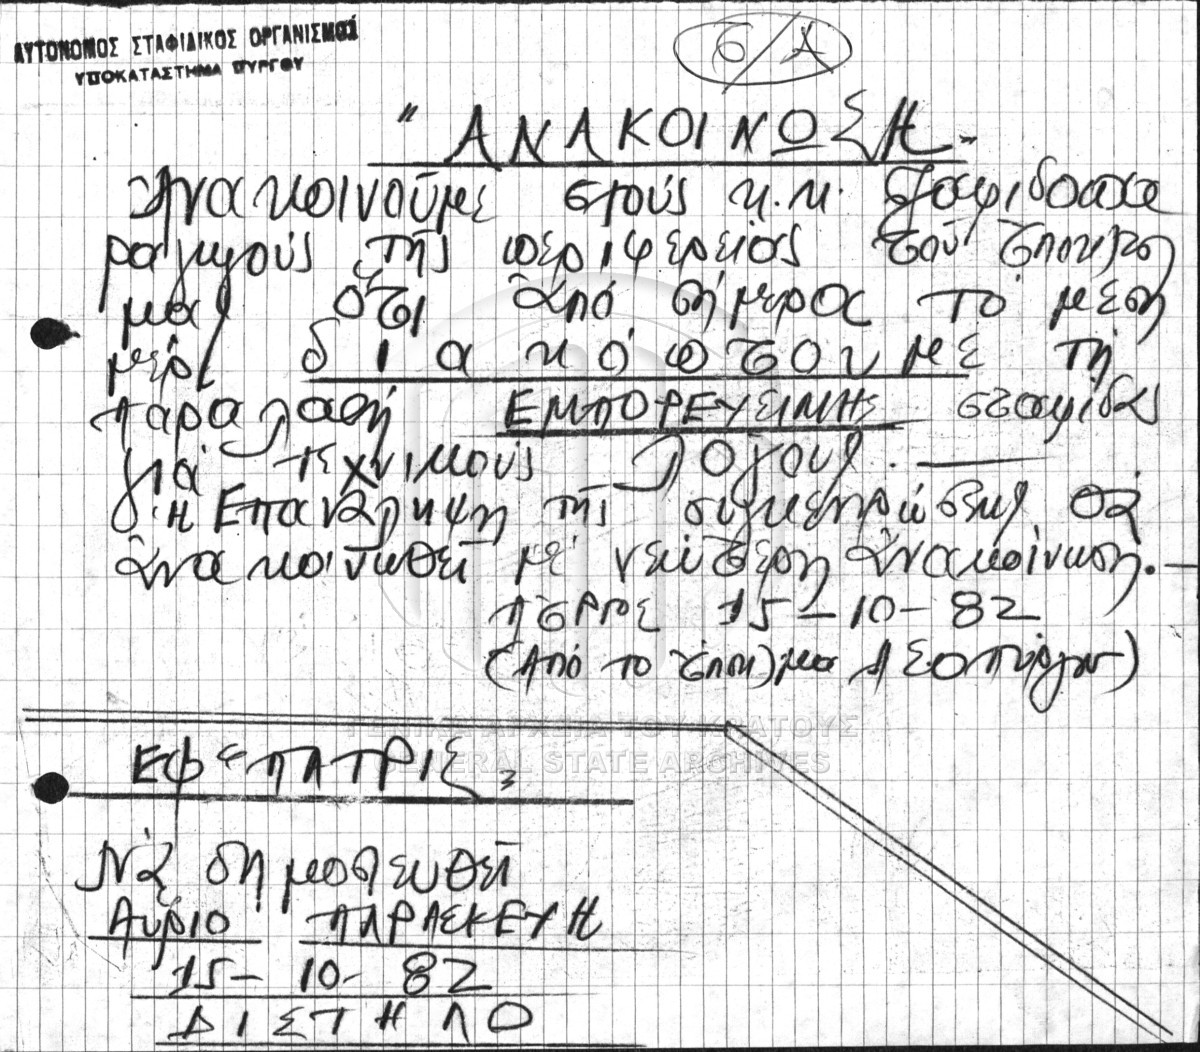 ΑΥΤΟΝΟΜΟΣ ΣΤΑΦΙΔΙΚΟΣ ΟΡΓΑΝΙΣΜΟΣ
ΥΠΟΚΑΤΑΣΤΗΜΑ ΠΥΡΓΟΥ
6/Α
"ΑΝΑΚΟΙΝΩΣΗ"
Ἀνακοινοῦμε στούς κ.κ. Σταφιδοπα
ραγωγούς τῆς περιφερείας τοῦ Ὑποκ)
μας ὅτι ἀπό σήμερα τό μεση
μέρι διακόπτουμε τή
παραλαβή ΕΜΠΟΡΕΥΣΙΜΗΣ σταφίδας
γιά τεχνικούς λόγους.
Ἡ Ἐπανάληψη τῆς συγκεντρώσεως θά
ἀνακοινωθεῖ μέ νεώτερη ἀνακοίνωση.
ΠΥΡΓΟΣ 15-10-82
(Ἀπό τό Ὑποκ)μα ΑΣΟ Πύργου)
ΓΕΝΙΚΑ ΑΡΧΕΙΑ ΤΟΥ ΚΡΑΤΟΥΣ
GENERAL STATE ARCHIVES
ΕΦ "ΠΑΤΡΙΣ"
Νά δημοσιευθεῖ
Αὔριο ΠΑΡΑΣΚΕΥΗ
15-10-82
ΔΙΣΤΗΛΟ